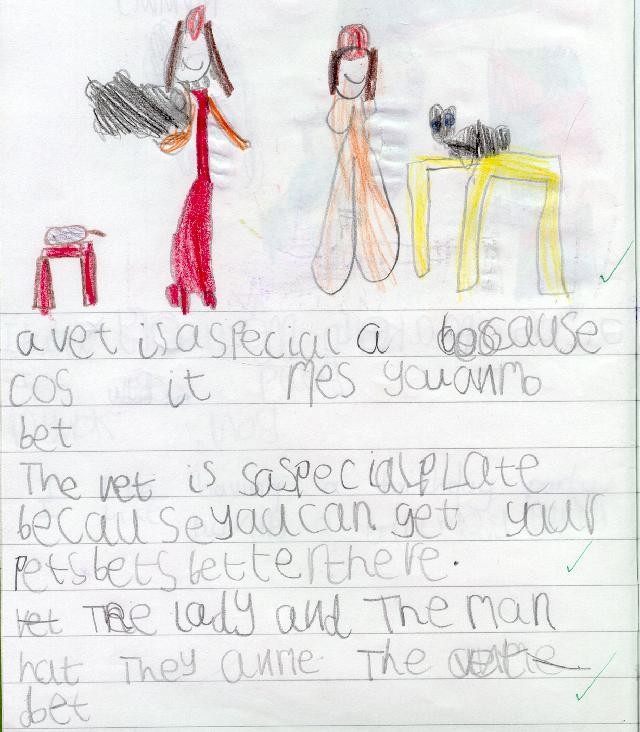 a vet is a special a because
cos it mes you anm
bet
The vet is saspecial plate
because you can get your
pets bets better there.
vet The lady and The man
hat They anme The
bet